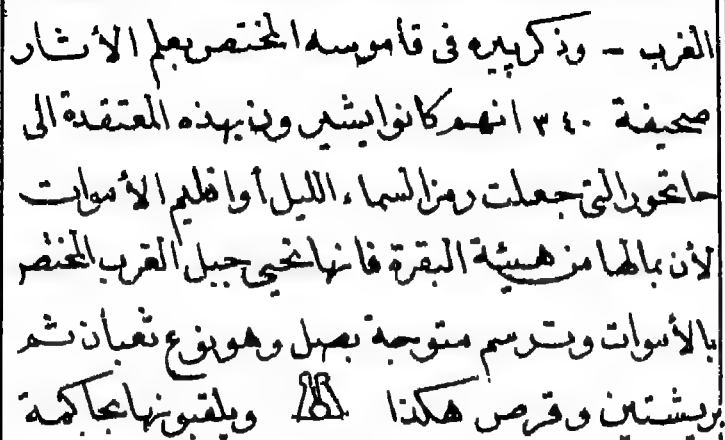 الغرب - وذكر بيره فى قاموسه المختص بعلم الأثار
صحيفة ٣٤٠ انهم كانوا يشيرون بهذه المعتقدة الى
حاتحور التى جعلت رمز السماء الليل أو اقليم الأموات
لأن بمالها من هيئة البقرة فانها تحيى جبل الغرب المختص
بالأموات وترسم متوجة بصل وهو نوع ثعبان ثم
بريشتين وقرص هكذا ويلقبونها بحاكمة